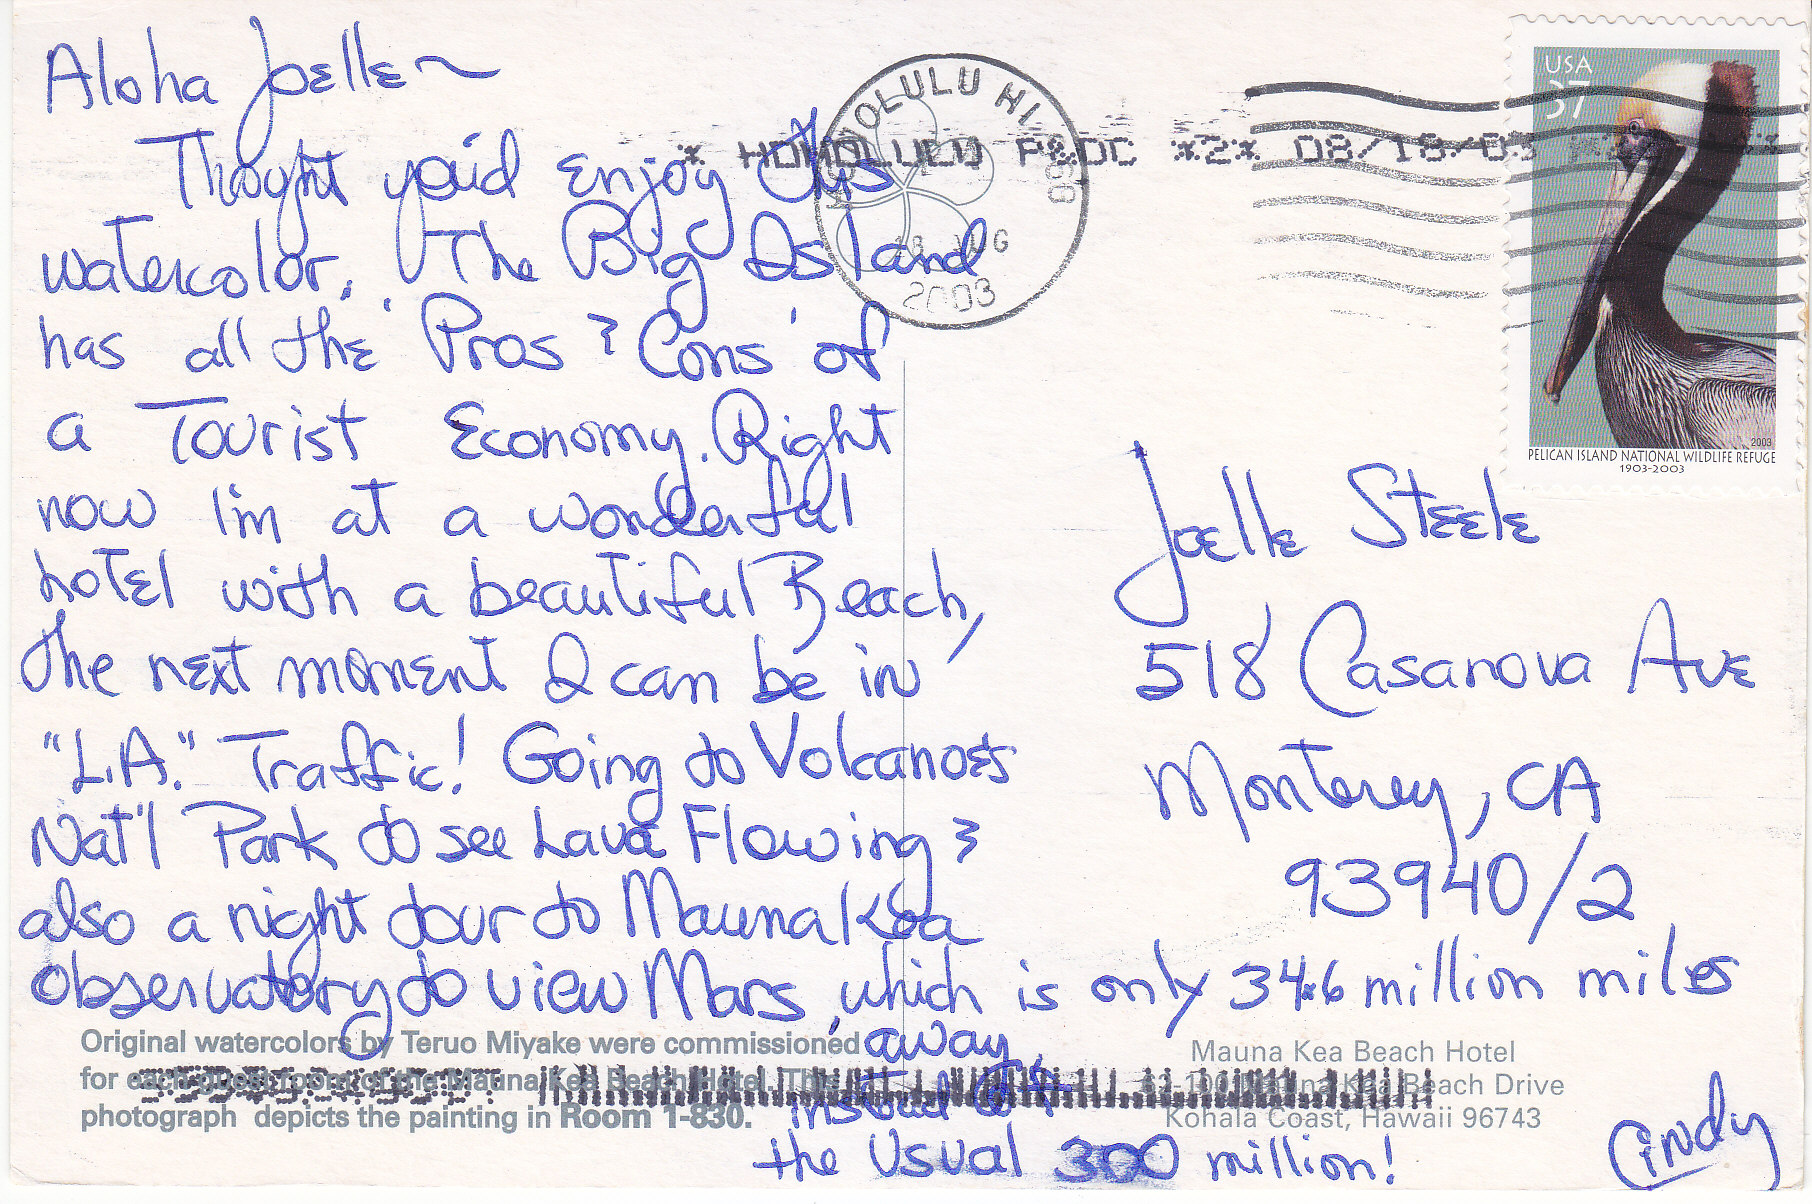 Aloha Joelle~
Thought you'd enjoy this
watercolor. The Big Island
has all the 'Pros & Cons' of
a Tourist Economy. Right
now I'm at a wonderful
hotel with a beautiful Beach,
the next moment I can be in
"L.A." Traffic! Going to Volcanoes
Nat'l Park to see Lava Flowing &
also a night tour to Mauna Kea
Observatory to view Mars, which is only 34.6 million miles
away,
instead of
the Usual 300 million!
Cindy
HONOLULU HI 968
18 AUG
2003
* HONOLULU P&DC *2* 08/18/03
USA
37
2003
PELICAN ISLAND NATIONAL WILDLIFE REFUGE
1903-2003
Joelle Steele
518 Casanova Ave
Monterey, CA
93940/2
Original watercolors by Teruo Miyake were commissioned
for each guest room of the Mauna Kea Beach Hotel. This
photograph depicts the painting in Room 1-830.
Mauna Kea Beach Hotel
62-100 Mauna Kea Beach Drive
Kohala Coast, Hawaii 96743